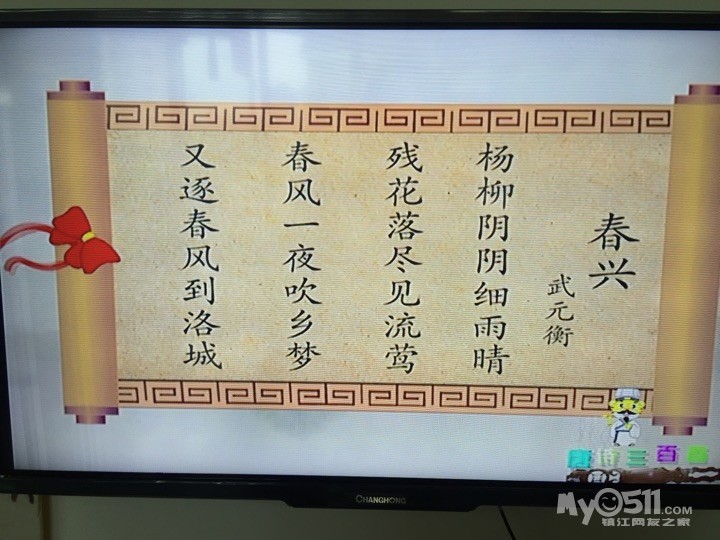 春兴
武元衡
杨柳阴阴细雨晴
残花落尽见流莺
春风一夜吹乡梦
又逐春风到洛城
唐诗三百首
CHANGHONG
My0511.com
镇江网友之家